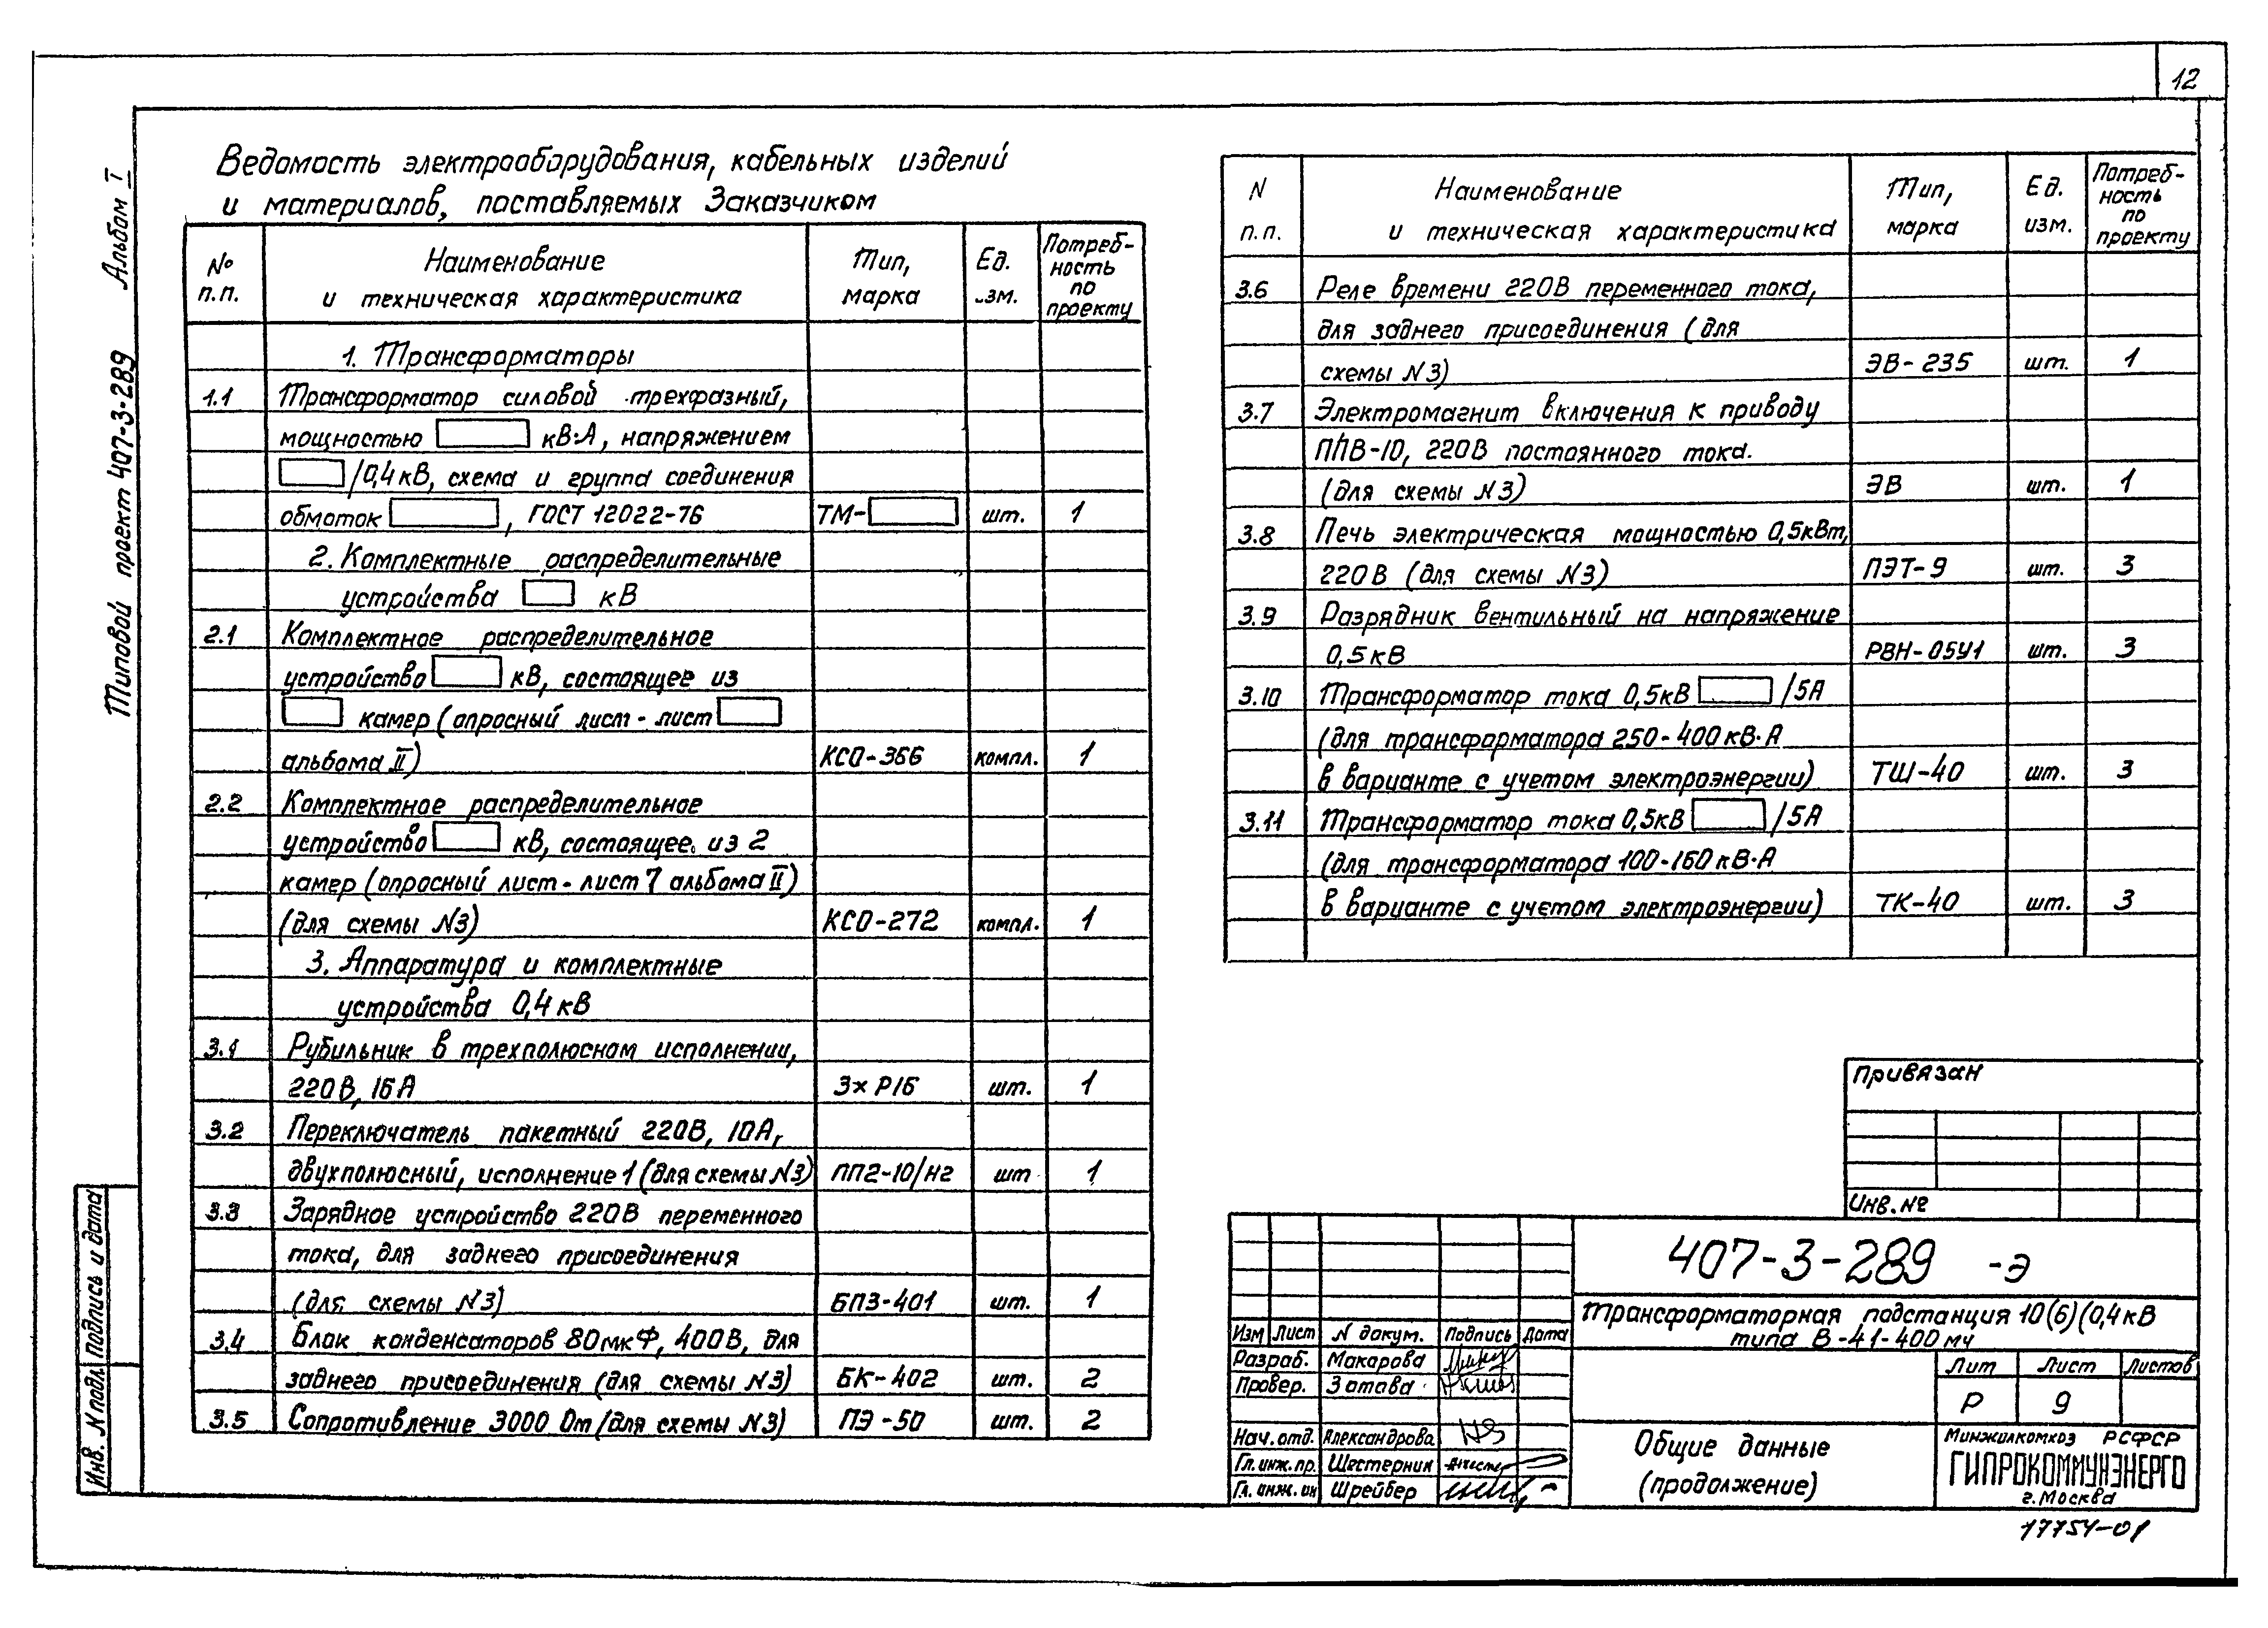 12
Типовой проект 407-3-289 Альбом I
Ведомость электрооборудования, кабельных изделий
и материалов, поставляемых Заказчиком
№ п.п. Наименование и техническая характеристика Тип, марка Ед. изм. Потреб-ность по проекту
1. Трансформаторы
1.1 Трансформатор силовой трехфазный,
мощностью кВ·А, напряжением
/0,4 кВ, схема и группа соединения
обмоток , ГОСТ 12022-76 ТМ- шт. 1
2. Комплектные распределительные
устройства кВ
2.1 Комплектное распределительное
устройство кВ, состоящее из
камер (опросный лист - лист
альбома II) КСО-366 компл. 1
2.2 Комплектное распределительное
устройство кВ, состоящее из 2
камер (опросный лист - лист 7 альбома II)
(для схемы N3) КСО-272 компл. 1
3. Аппаратура и комплектные
устройства 0,4 кВ
3.1 Рубильник в трехполюсном исполнении,
220В, 16А 3х Р16 шт. 1
3.2 Переключатель пакетный 220В, 10А,
двухполюсный, исполнение 1 (для схемы N3) ПП2-10/Н2 шт 1
3.3 Зарядное устройство 220В переменного
тока, для заднего присоединения
(для схемы N3) БПЗ-401 шт. 1
3.4 Блок конденсаторов 80мкФ, 400В, для
заднего присоединения (для схемы N3) БК-402 шт. 2
3.5 Сопротивление 3000 Ом (для схемы N3) ПЭ-50 шт. 2
N п.п. Наименование и техническая характеристика Тип, марка Ед. изм. Потреб-ность по проекту
3.6 Реле времени 220В переменного тока,
для заднего присоединения (для
схемы N3) ЭВ-235 шт. 1
3.7 Электромагнит включения к приводу
ППВ-10, 220В постоянного тока.
(для схемы N3) ЭВ шт. 1
3.8 Печь электрическая мощностью 0,5кВт,
220В (для схемы N3) ПЭТ-9 шт. 3
3.9 Разрядник вентильный на напряжение
0,5кВ РВН-05У1 шт. 3
3.10 Трансформатор тока 0,5кВ /5А
(для трансформатора 250-400кВ·А
в варианте с учетом электроэнергии) ТШ-40 шт. 3
3.11 Трансформатор тока 0,5кВ /5А
(для трансформатора 100-160кВ·А
в варианте с учетом электроэнергии) ТК-40 шт. 3
Привязан
Инв. №
407-3-289 -Э
Трансформаторная подстанция 10(6)(0,4кВ
типа В-41-400 му
Изм Лист N докум. Подпись Дата
Разраб. Макарова
Провер. Зотова
Нач. отд. Александрова
Гл. инж. пр. Шестерник
Гл. инж. ин Шрейбер
Лит Лист Листов
Р 9
Общие данные
(продолжение)
Минжилкомхоз РСФСР
ГИПРОКОММУНЭНЕРГО
г. Москва
17754-01
Инв. N подл. Подпись и дата